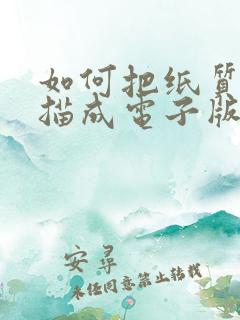 如何把纸质
描成电子版
安寻
未经同意禁止转载